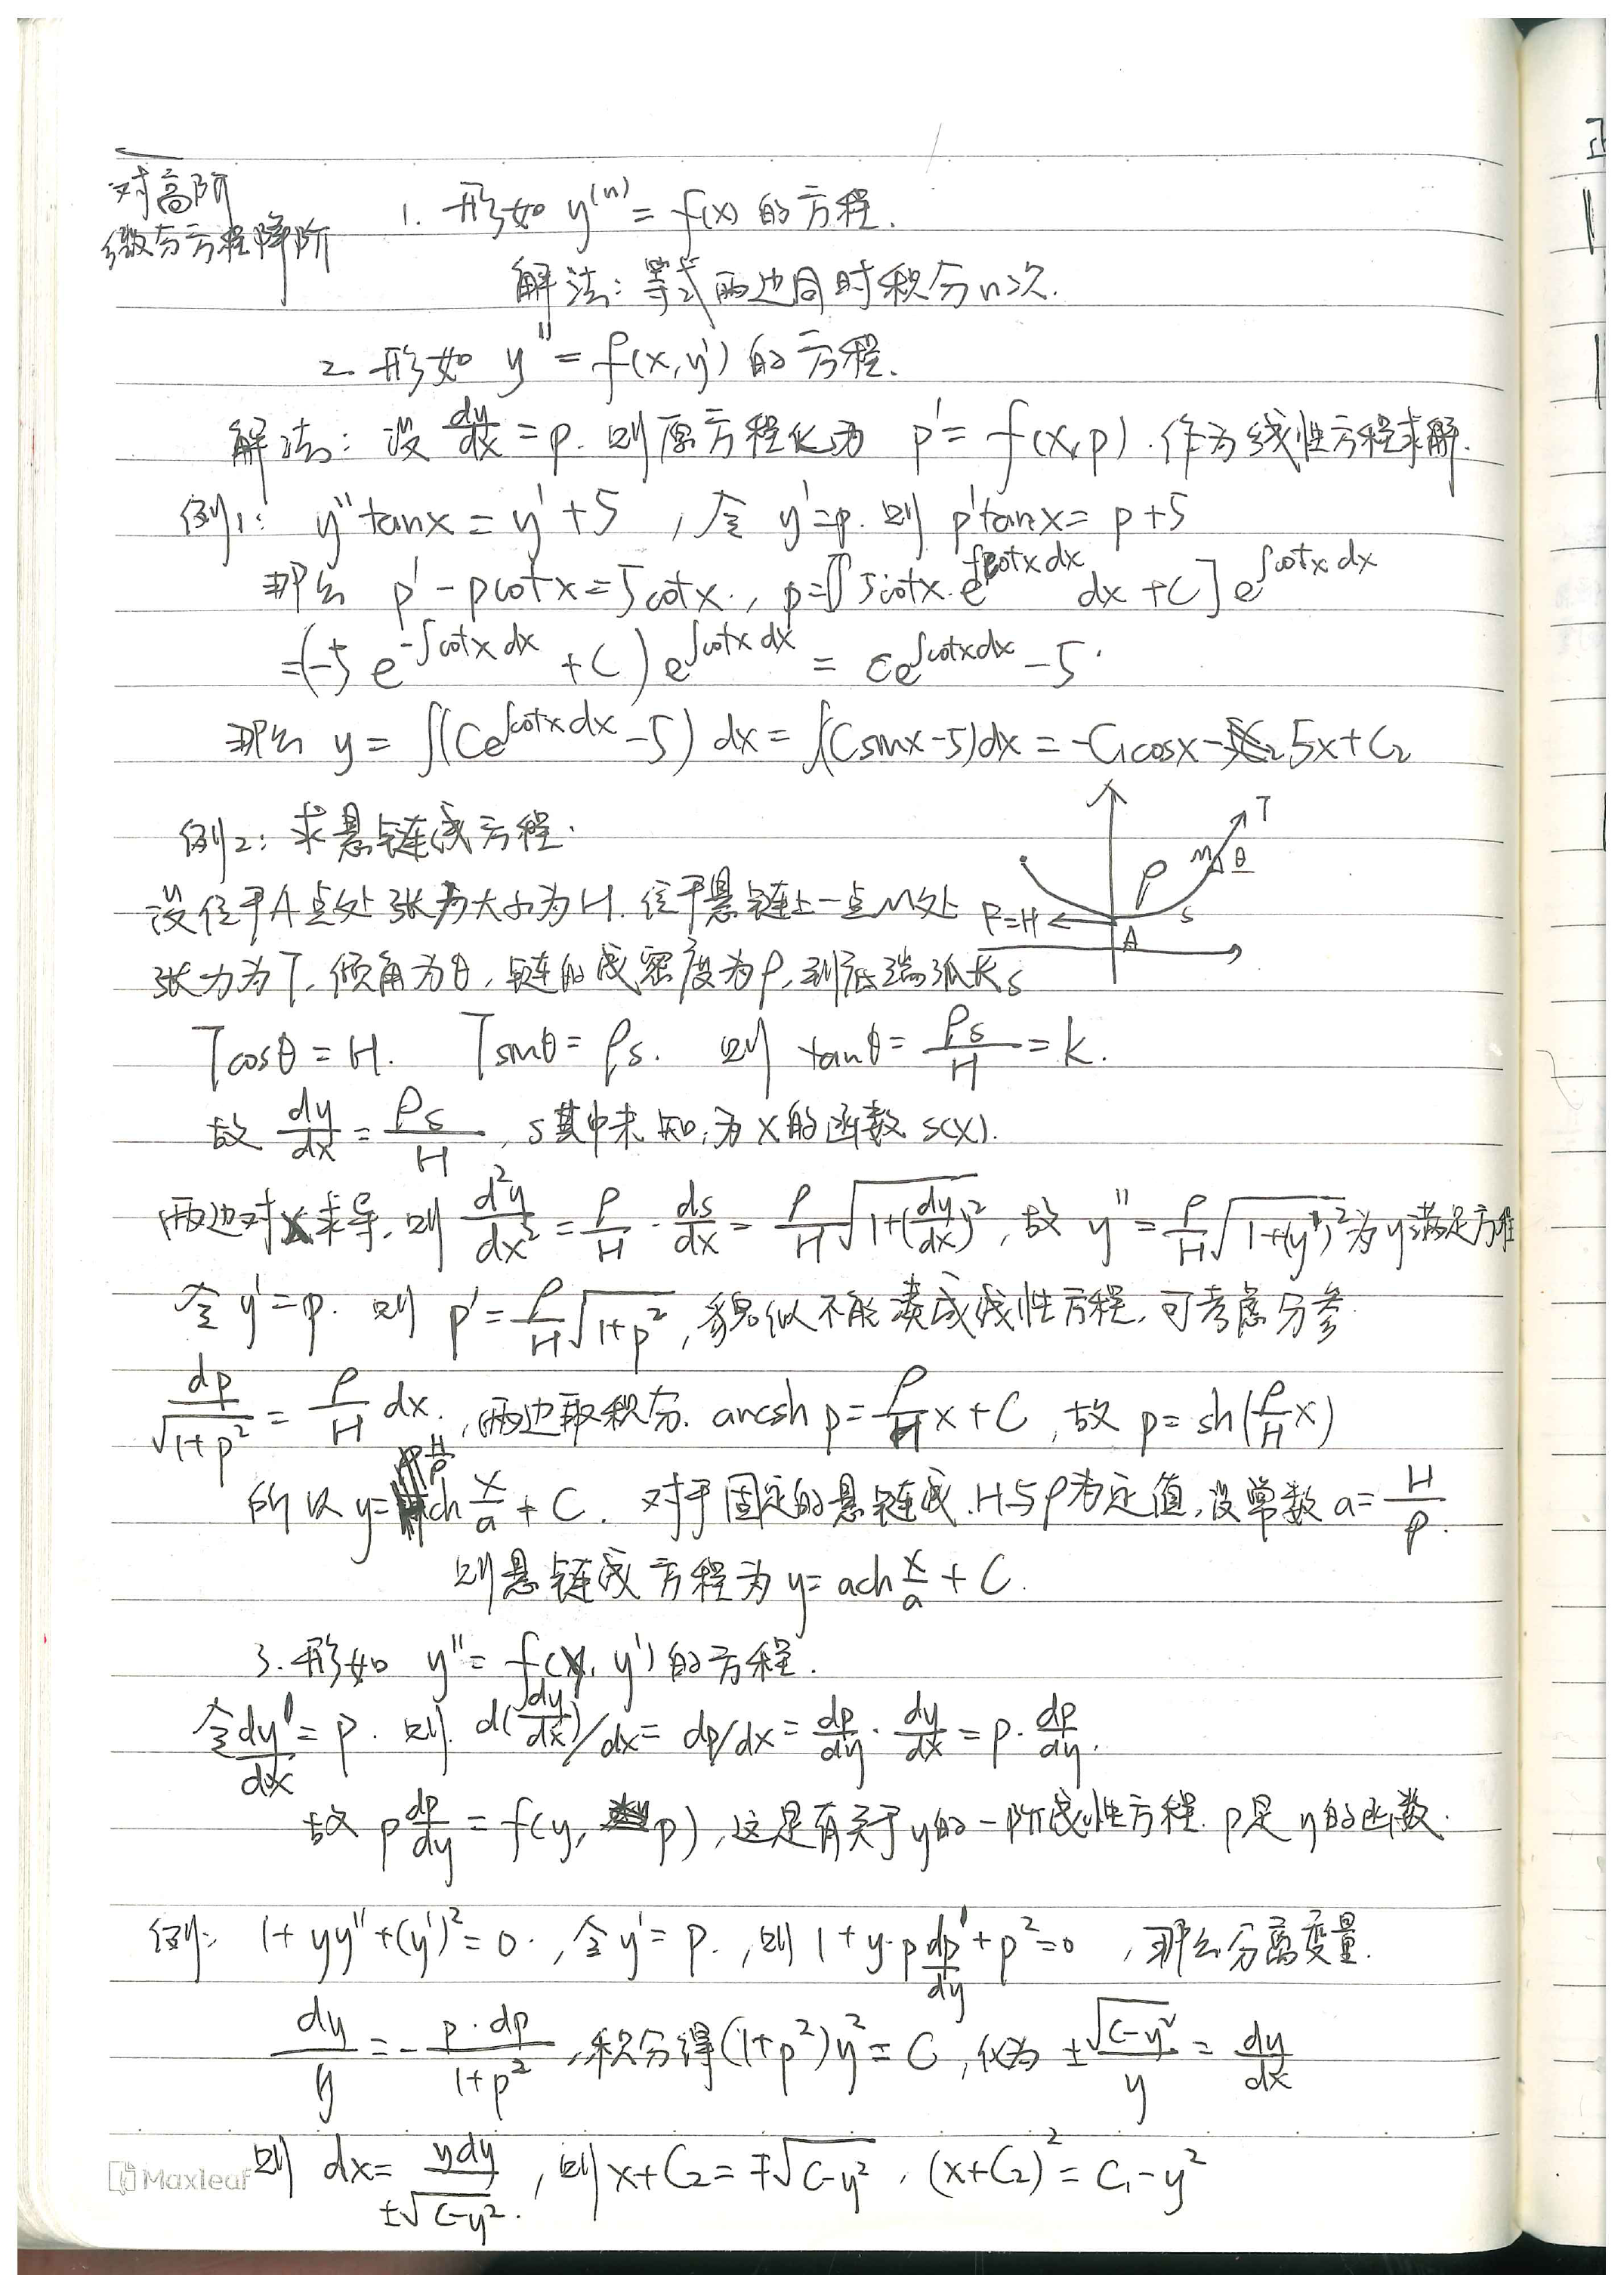 对高阶
微分方程降阶
1. 形如 y⁽ⁿ⁾ = f(x) 的方程.
解法: 等式两边同时积分n次.
2. 形如 y'' = f(x, y') 的方程.
解法: 设 dy/dx = p. 则原方程化为 p' = f(x,p). 作为线性方程求解.
例1: y''tanx = y' + 5 , 令 y'=p. 则 p'tanx = p+5
那么 p' - pcotx = 5cotx., p=[∫5cotx·e^{∫cotxdx} dx + C] e^{∫cotxdx}
=(-5 e^{-∫cotxdx} + C) e^{∫cotxdx} = Ce^{∫cotxdx} - 5.
那么 y = ∫(Ce^{∫cotxdx} - 5) dx = ∫(Csinx-5)dx = -C₁cosx - 5x + C₂
例2: 求悬链线方程.
T
M
θ
ρ
s
F=H
A
设位于A点处张力大小为H. 位于悬链上一点M处
张力为T, 倾角为θ, 链的线密度为ρ, 到底端弧长s
Tcosθ = H. Tsinθ = ρs. 则 tanθ = ρs/H = k.
故 dy/dx = ρs/H , s其中未知, 为x的函数 s(x).
两边对x求导, 则 d²y/dx² = ρ/H · ds/dx = ρ/H √(1+(dy/dx)²), 故 y'' = ρ/H √(1+(y')²) 为y满足方程
令 y'=p. 则 p' = ρ/H √(1+p²), 貌似不能凑成线性方程, 可考虑分参.
dp/√(1+p²) = ρ/H dx., 两边取积分. arcsh p = ρ/H x + C, 故 p = sh(ρ/H x)
所以 y= H/ρ ch x/a + C. 对于固定的悬链线, H与ρ为定值, 设常数 a = H/ρ.
则悬链线方程为 y = ach x/a + C.
3. 形如 y'' = f(y, y') 的方程.
令 dy/dx = p. 则 d(dy/dx)/dx = dp/dx = dp/dy · dy/dx = p · dp/dy.
故 p dp/dy = f(y, p), 这是有关于y的一阶线性方程. p是y的函数.
例: 1 + yy'' + (y')² = 0., 令 y' = p., 则 1 + y·p dp/dy + p² = 0 , 那么分离变量.
dy/y = - p·dp/(1+p²), 积分得 (1+p²)y² = C, 化为 ±√(C-y²)/y = dy/dx
则 dx = ydy/±√(C-y²)., 则 x + C₂ = ∓√(C-y²), (x+C₂)² = C₁ - y²
Maxleaf